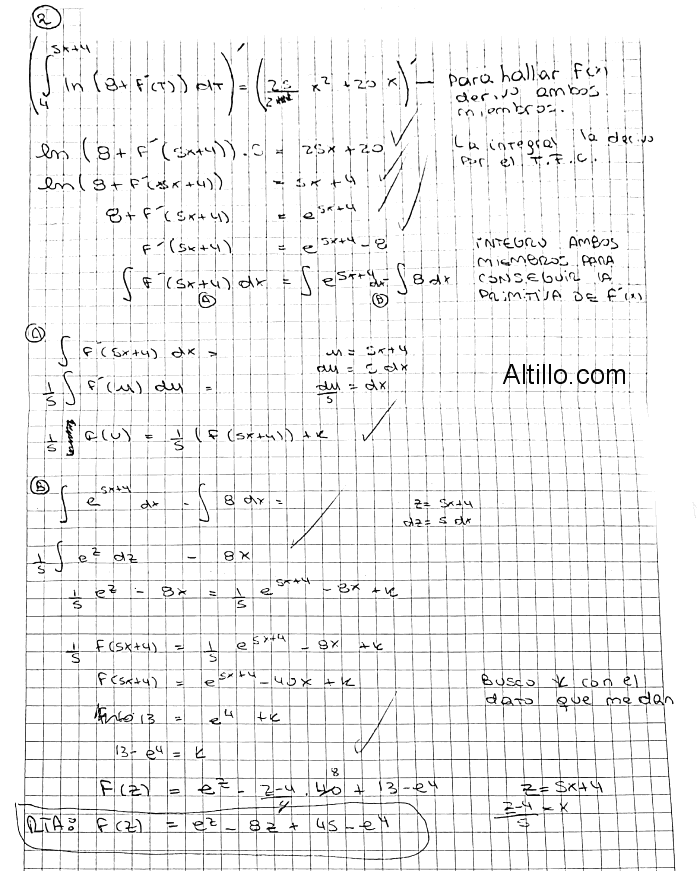 2
( ∫ 4 5x+4 ln (8+F´(T)) dT )´ = ( 25/2 x² + 20 x )´ — para hallar F(x)
derivo ambos
miembros.
ln (8+F´(5x+4)).5 = 25x+20
La integral la derivo
por el T.F.C.
ln (8+F´(5x+4)) = 5x+4
8+F´(5x+4) = e^5x+4
F´(5x+4) = e^5x+4 - 8
INTEGRO AMBOS
MIEMBROS PARA
CONSEGUIR LA
PRIMITIVA DE F´(x)
∫ F´(5x+4) dx = ∫ e^5x+4 dx - ∫ 8 dx
A B
∫ F´(5x+4) dx = u = 5x+4
du = 5 dx
1/5 ∫ F´(u) du = du/5 = dx
Altillo.com
1/5 F(u) = 1/5 (F(5x+4)) + k
B
∫ e^5x+4 dx - ∫ 8 dx = z = 5x+4
dz = 5 dx
1/5 ∫ e^z dz - 8x
1/5 e^z - 8x = 1/5 e^5x+4 - 8x + k
1/5 F(5x+4) = 1/5 e^5x+4 - 8x + k
F(5x+4) = e^5x+4 - 40x + k
Busco k con el
dato que me dan
13 = e^4 + k
13 - e^4 = k
F(z) = e^z - z-4/5 . 40 8 + 13 - e^4 z = 5x+4
z-4/5 = x
RTA: F(z) = e^z - 8z + 45 - e^4